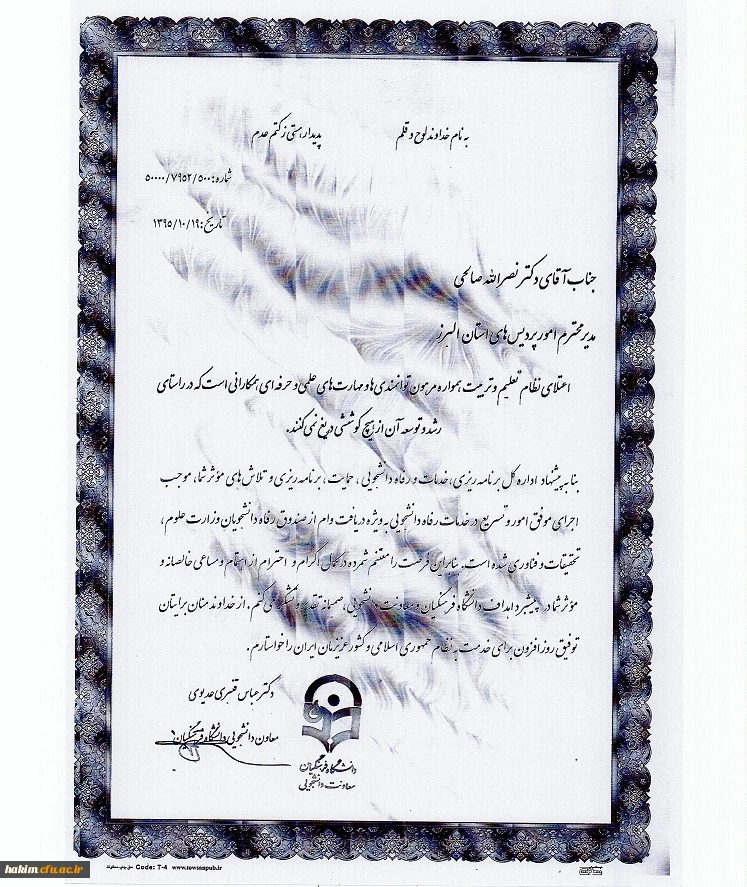 به نام خداوند لوح و قلم پدیدار هستی ز کتم عدم
شماره: ۵۰۰۰۰/۷۹۵۲/۵۰۰
تاریخ: ۱۳۹۵/۱۰/۱۹
جناب آقای دکتر نصراالله صالحی
مدیر محترم امور پردیس های استان البرز
اعتلای نظام تعلیم و تربیت همواره مرهون توانمندی ها و مهارت های علمی و حرفه ای همکارانی است که در راستای
رشد و توسعه آن از هیچ کوششی دریغ نمی کنند.
بنا به پیشنهاد اداره کل برنامه ریزی، خدمات و رفاه دانشجویی، حمایت، برنامه ریزی و تلاش های مؤثر شما، موجب
اجرای موفق امور و تسریع در خدمات رفاه دانشجویی به ویژه دریافت وام از صندوق رفاه دانشجویان وزارت علوم،
تحقیقات و فناوری شده است. بنابراین فرصت را مغتنم شمرده در کمال اکرام و احترام از اهتمام و مساعی خالصانه و
مؤثر شما در پیشبرد اهداف دانشگاه فرهنگیان و معاونت دانشجویی، صمیمانه تقدیر و تشکر می کنم. از خداوند منان برایتان
توفیق روز افزون برای خدمت به نظام جمهوری اسلامی و کشور عزیزمان ایران را خواستارم.
دکتر عباس قنبری عدیوی
معاون دانشجویی دانشگاه فرهنگیان
دانشگاه فرهنگیان
معاونت دانشجویی
Code: T-4 www.towsanpub.ir
hakim.cfu.ac.ir